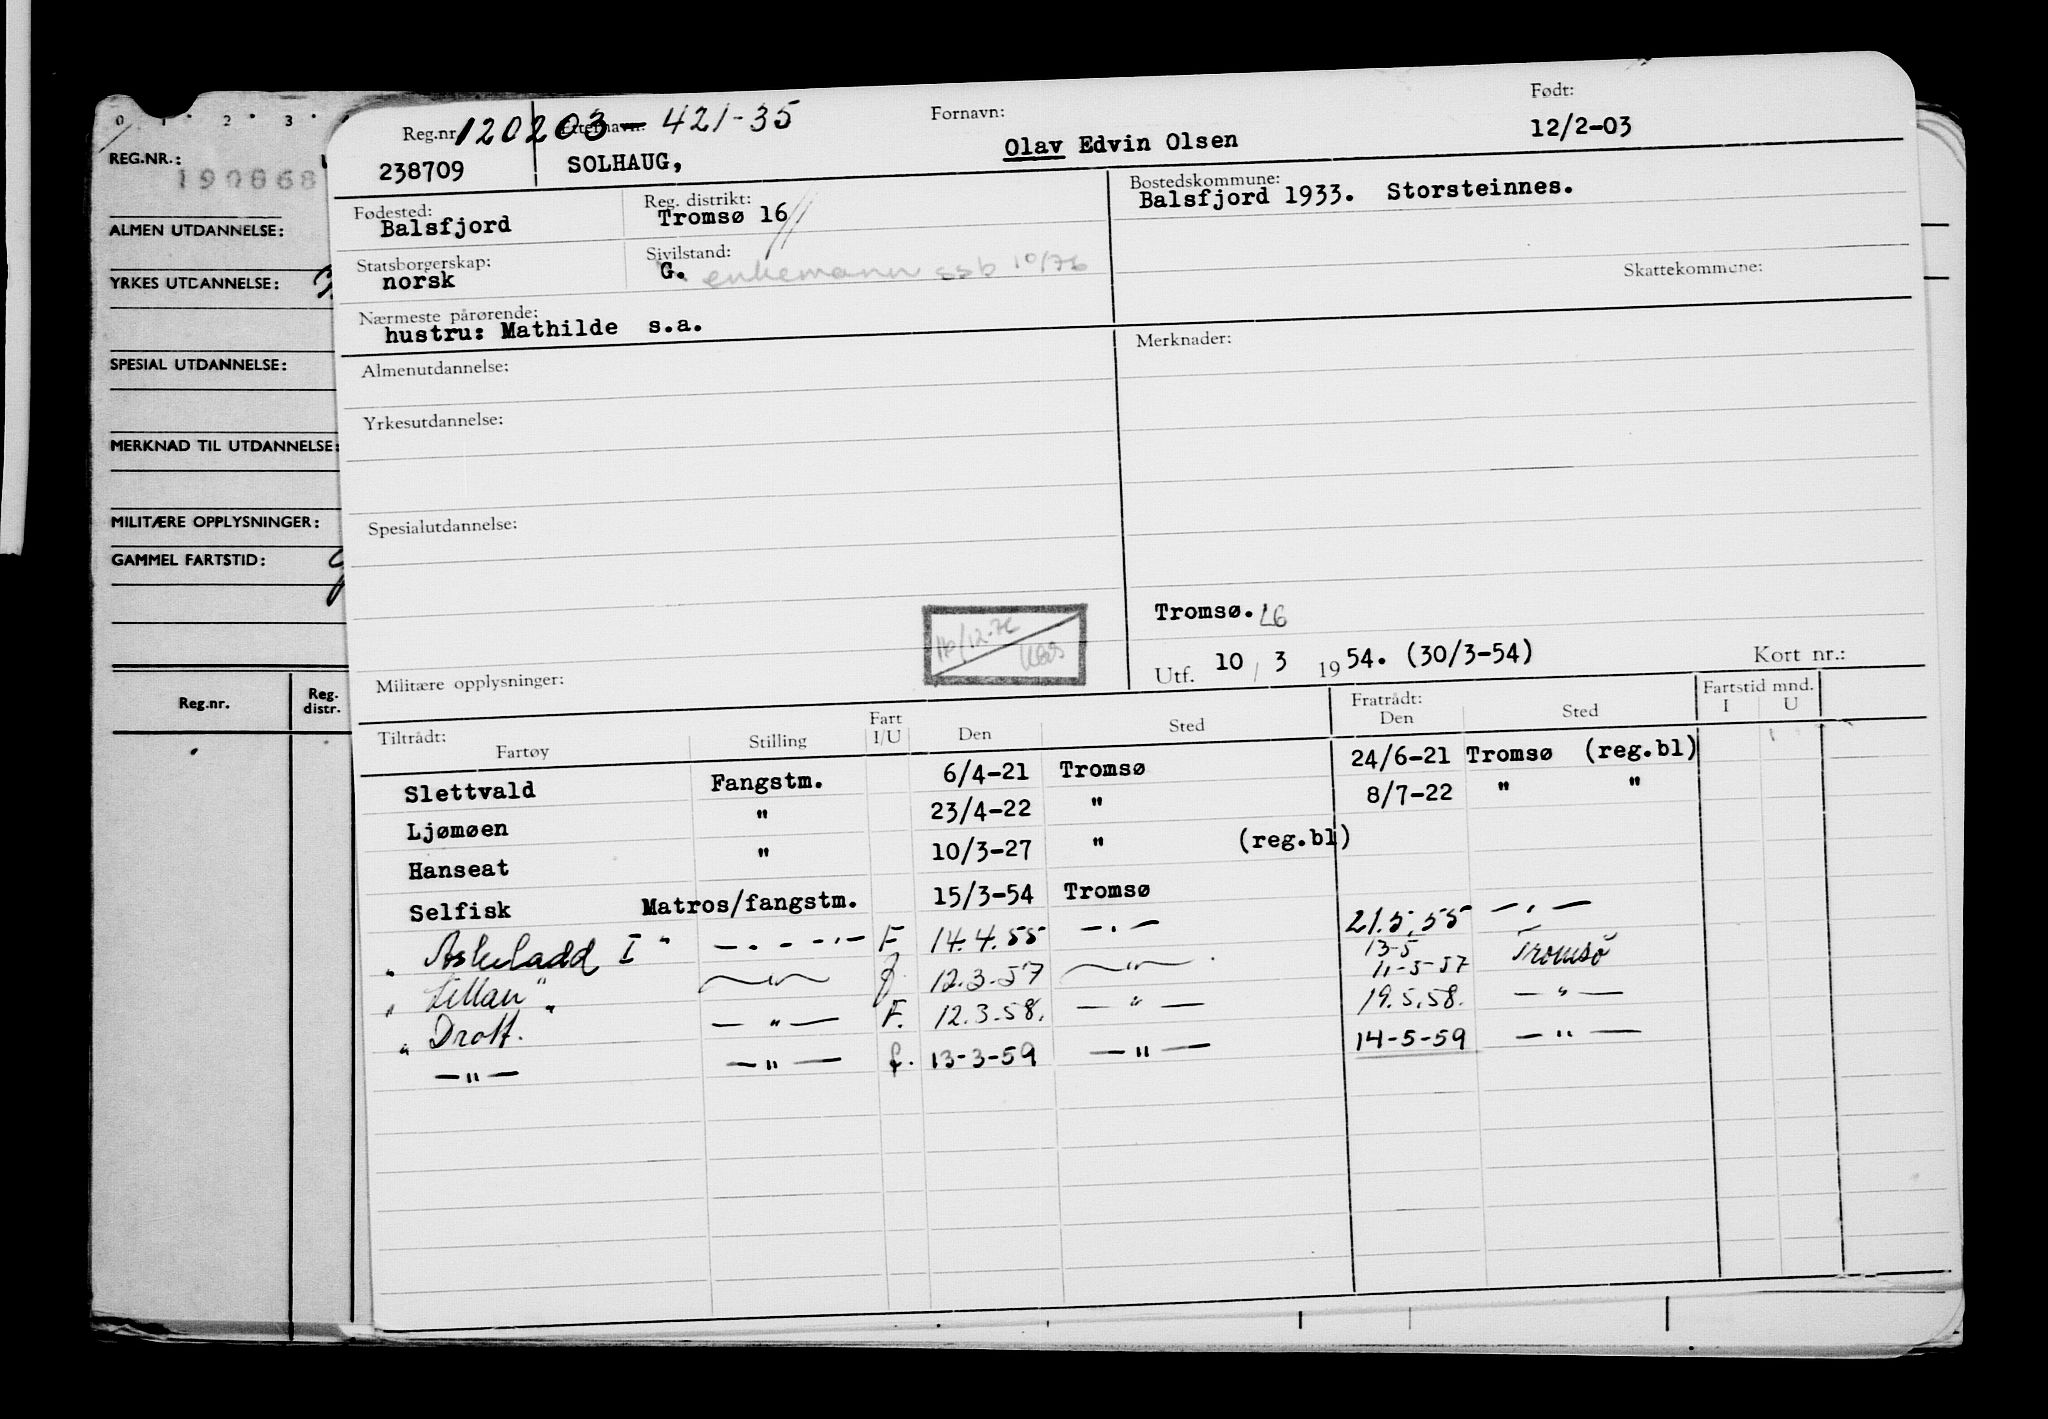 0 1 2 3
REG.NR.:
190868
ALMEN UTDANNELSE:
YRKES UTDANNELSE:
SPESIAL UTDANNELSE:
MERKNAD TIL UTDANNELSE:
MILITÆRE OPPLYSNINGER:
GAMMEL FARTSTID:
Reg.nr. Reg. distr.
Reg.nr. 120203-421-35 Etternavn: Fornavn: Født:
238709 SOLHAUG, Olav Edvin Olsen 12/2-03
Fødested: Reg. distrikt: Bostedskommune:
Balsfjord Tromsø 16 Balsfjord 1933. Storsteinnes.
Statsborgerskap: Sivilstand: Skattekommune:
norsk G. enkemann ssb 10/76
Nærmeste pårørende:
hustru: Mathilde s.a.
Almenutdannelse: Merknader:
Yrkesutdannelse:
Spesialutdannelse:
Tromsø. 16
16/12-76
Militære opplysninger: Utf. 10 / 3 1954. (30/3-54) Kort nr.:
Tiltrådt: Fratrådt: Fartstid mnd.
Fartøy Stilling Fart I/U Den Sted Den Sted I U
Slettvald Fangstm. 6/4-21 Tromsø 24/6-21 Tromsø (reg.bl)
Ljømøen " 23/4-22 " 8/7-22 " "
Hanseat " 10/3-27 " (reg.bl)
Selfisk Matros/fangstm. 15/3-54 Tromsø
" Askeladd I " —.— F 14.4.55 —.— 21.5.55 —.—
" Lillan " —"— f 12.3.57 —"— 13-5 11-5-57 Tromsø
" Drott. " —"— F. 12.3.58. —"— 19.5.58. —"—
—"— —"— f. 13-3-59 —"— 14-5-59 —"—